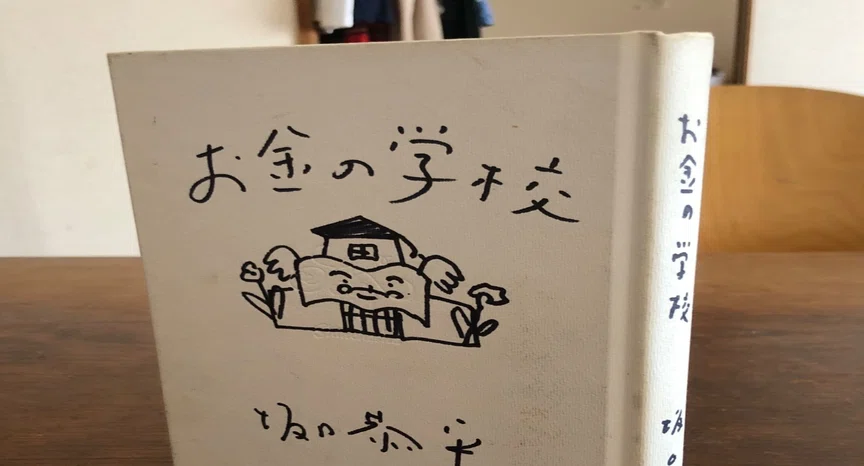 お金の学校
坂口恭平
お金の学校
坂口